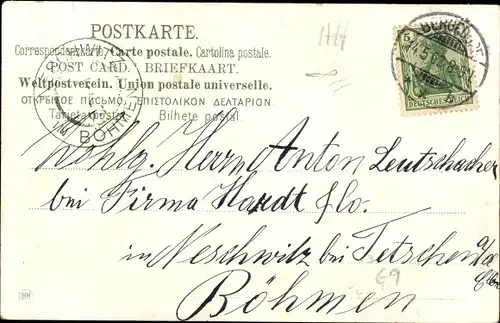 POSTKARTE.
Correspondenzkarte. Carte postale. Cartolina postale.
POST CARD. BRIEFKAART.
Weltpostverein. Union postale universelle.
ОТКРЫТОЕ ПИСЬМО. ΕΠΙΣΤΟΛΙΚΟΝ ΔΕΛΤΑΡΙΟΝ.
Bilhete postal.
BÖHMEN
5
DEUTSCHES REICH
Wohlg. Herrn Anton Leutschacher
bei Firma Hardt & Co.
in Neschwitz bei Tetschen a/d
Elbe
Böhmen
E9